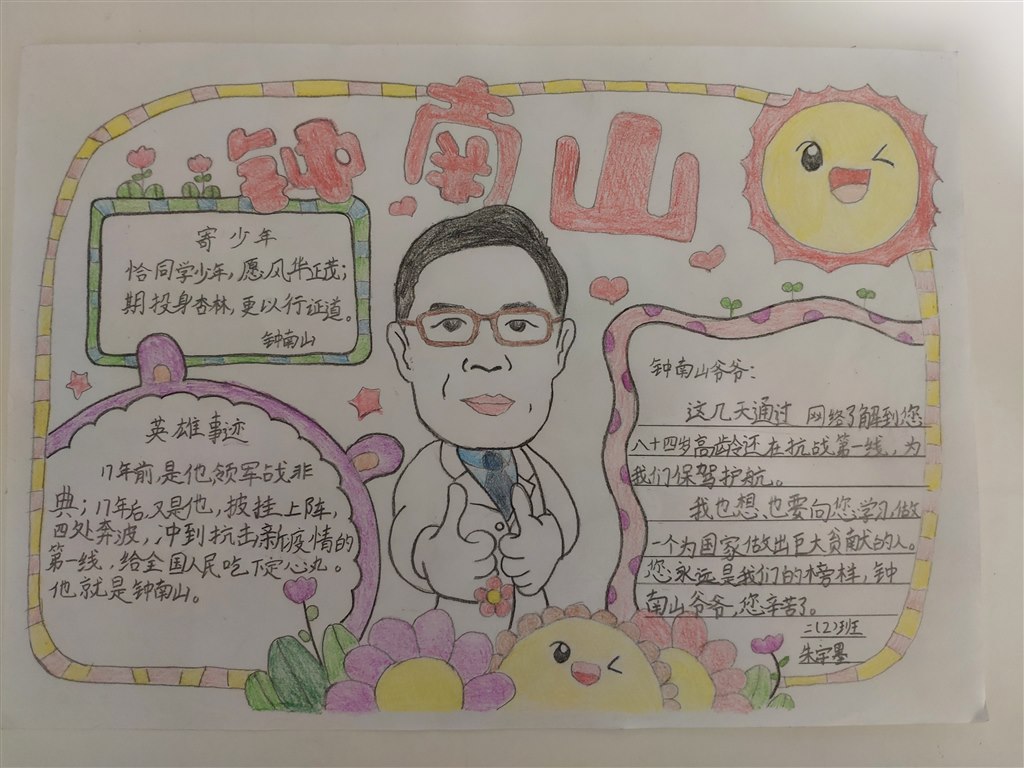 钟南山
寄少年
恰同学少年,愿风华正茂;
期投身杏林,更以行证道。
钟南山
英雄事迹
17年前,是他,领军战非
典;17年后,又是他,披挂上阵,
四处奔波,冲到抗击新疫情的
第一线,给全国人民吃下定心丸。
他就是钟南山。
钟南山爷爷:
这几天通过 网络了解到您
八十四岁高龄还在抗战第一线,为
我们保驾护航。
我也想也要向您学习做
一个为国家做出巨大贡献的人。
您永远是我们的榜样,钟
南山爷爷,您辛苦了。
二(2)班
朱宇墨